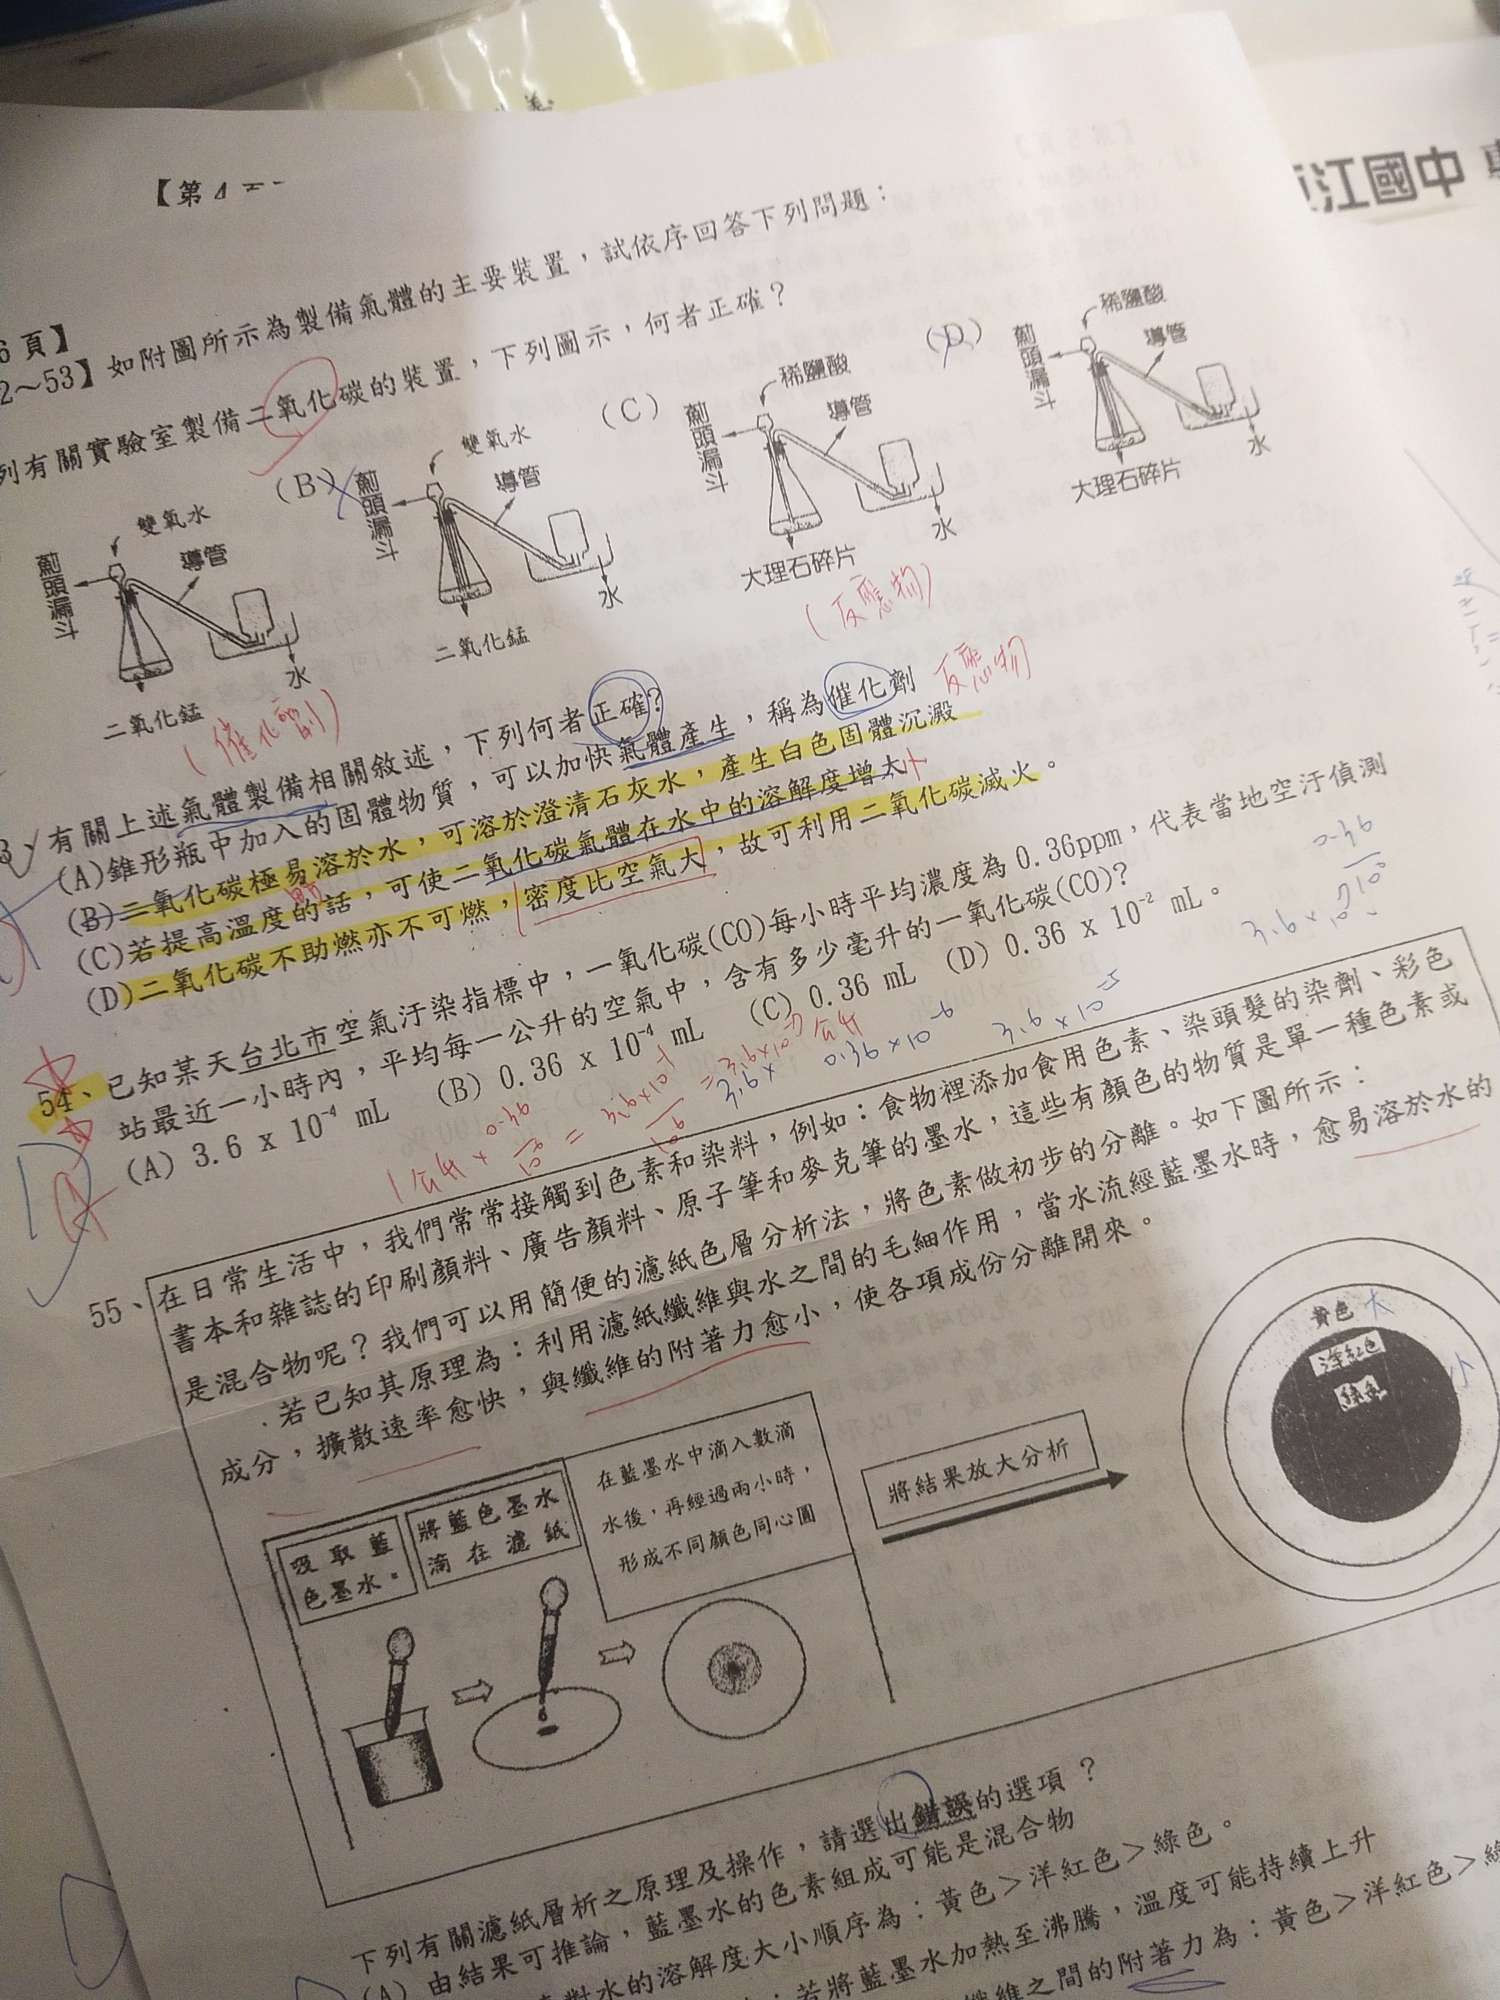 【第4
江國中
6頁】
2～53】如附圖所示為製備氣體的主要裝置，試依序回答下列問題：
列有關實驗室製備二氧化碳的裝置，下列圖示，何者正確？
(B)
(C)
(D)
雙氧水
薊頭漏斗
導管
水
二氧化錳
(催化劑)
雙氧水
薊頭漏斗
導管
水
二氧化錳
稀鹽酸
薊頭漏斗
導管
水
大理石碎片
(反應物)
稀鹽酸
薊頭漏斗
導管
水
大理石碎片
3、有關上述氣體製備相關敘述，下列何者正確?
(A)錐形瓶中加入的固體物質，可以加快氣體產生，稱為催化劑 反應物
(B)二氧化碳極易溶於水，可溶於澄清石灰水，產生白色固體沉澱
(C)若提高溫度的話，可使二氧化碳氣體在水中的溶解度增大 小
(D)二氧化碳不助燃亦不可燃，密度比空氣大，故可利用二氧化碳滅火。
54、已知某天台北市空氣汙染指標中，一氧化碳(CO)每小時平均濃度為 0.36ppm，代表當地空汙偵測
站最近一小時內，平均每一公升的空氣中，含有多少毫升的一氧化碳(CO)?
(A) 3.6 x 10⁻⁴ mL (B) 0.36 x 10⁻⁴ mL (C) 0.36 mL (D) 0.36 x 10⁻² mL。
A
0.36 x 10⁻⁶
3.6 x 10⁻⁵
55、在日常生活中，我們常常接觸到色素和染料，例如：食物裡添加食用色素、染頭髮的染劑、彩色
書本和雜誌的印刷顏料、廣告顏料、原子筆和麥克筆的墨水，這些有顏色的物質是單一種色素或
是混合物呢？我們可以用簡便的濾紙色層分析法，將色素做初步的分離。如下圖所示：
若已知其原理為：利用濾紙纖維與水之間的毛細作用，當水流經藍墨水時，愈易溶於水的
成分，擴散速率愈快，與纖維的附著力愈小，使各項成份分離開來。
吸取藍
色墨水。
將藍色墨水
滴在濾紙
在藍墨水中滴入數滴
水後，再經過兩小時，
形成不同顏色同心圓
將結果放大分析
黃色 大
洋紅色
綠色
小
下列有關濾紙層析之原理及操作，請選出錯誤的選項？
(A) 由結果可推論，藍墨水的色素組成可能是混合物
對水的溶解度大小順序為：黃色＞洋紅色＞綠色。
若將藍墨水加熱至沸騰，溫度可能持續上升
纖維之間的附著力為：黃色＞洋紅色＞綠